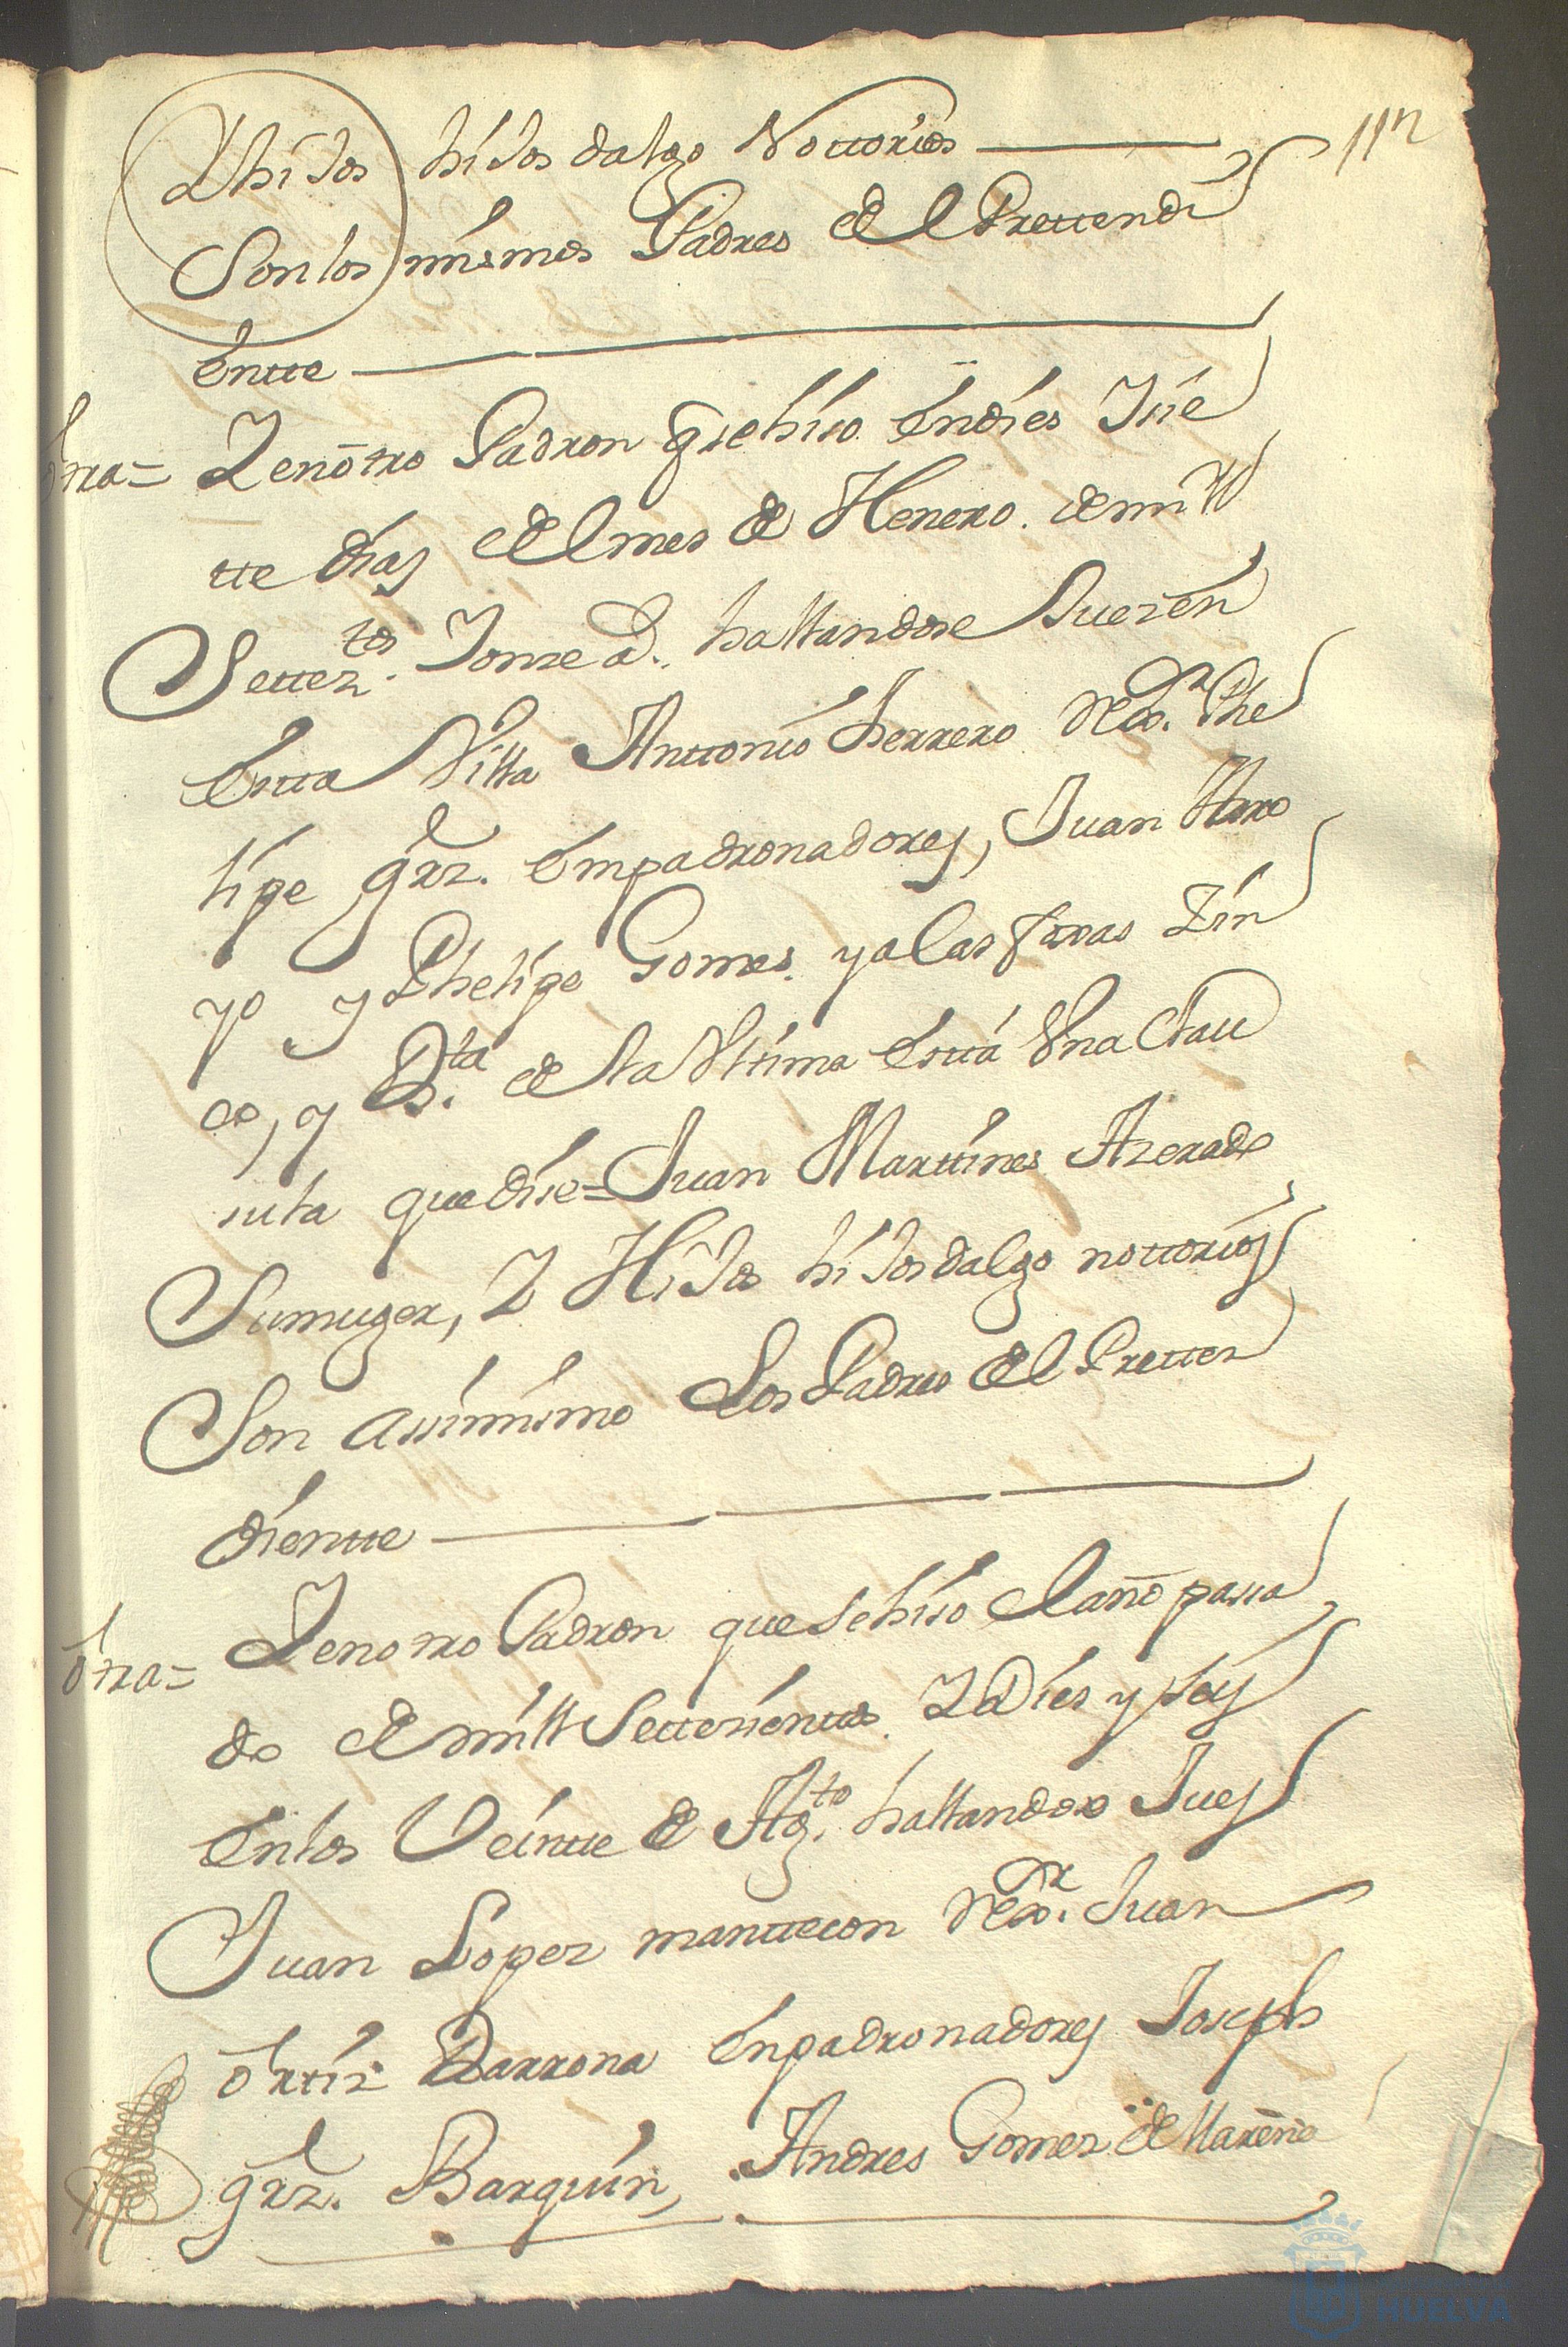 112
Ehijos hijos dalgo Nottorios
Son los mismos Padres del Prettendi
entte
otra = Y en otro Padron q se hiso en dies y sie
tte dias del mes de Henero de mill
Settez.tos y onze a. hallandose Juez en
estta Villa Anttonio herrero rex.or Phe
lipe grz. empadronadores, Juan Haro
yo y Phelipe Gomes. y a las foxas zin
co, y B.ta de la Vltima estta Vna Clau
sula que dise = Juan Marttines Azerado
Su muger, Y Hijos hijosdalgo nottorios
Son assimismo Los Padres del Pretten
diente
otra = Y en otro Padron que se hiso el año passa
do de mill Settesienttos Y Dies y seis
en los Veintte de Ag.to hallandose Jues
Juan Lopez manttecon rex.or Juan
ortiz Barrona enpadronadores Joseph
grz. Barquin, Andres Gomez de
HUELVA